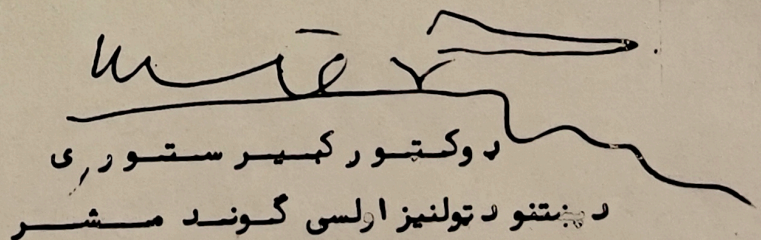 دوکتور کبیر ستوری
د پښتنو د ټولنیز اولسی گوند مشر